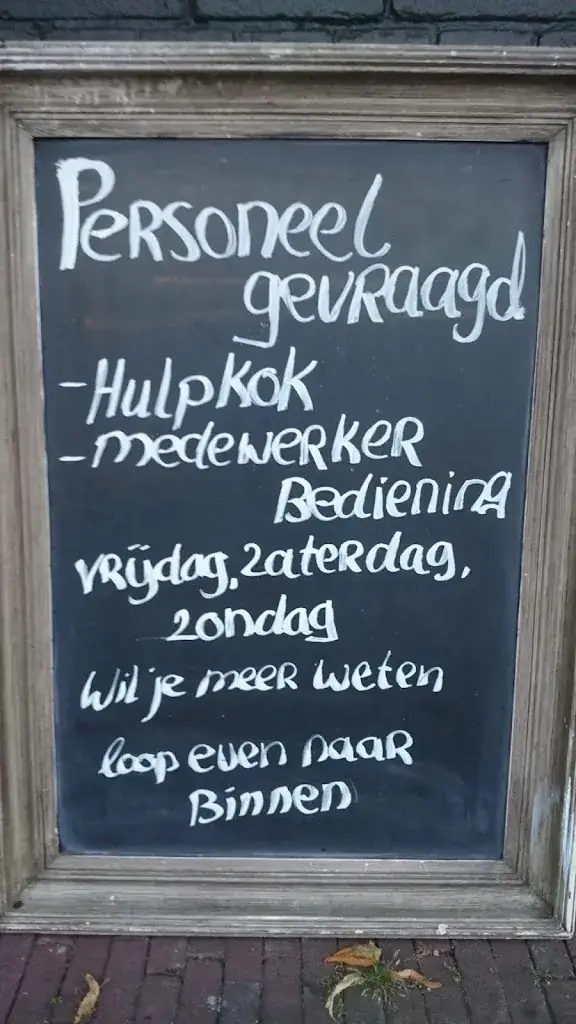 Personeel
gevraagd
- Hulpkok
- medewerker
Bediening
vrijdag, zaterdag,
zondag
Wil je meer weten
loop even naar
Binnen